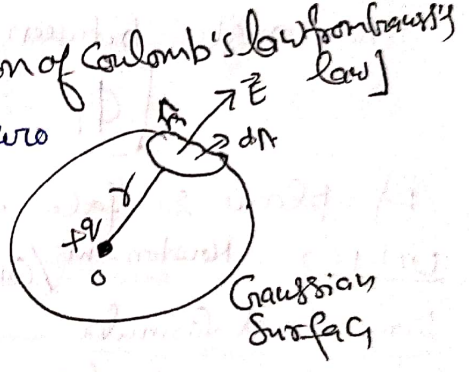 on of Coulomb's law from Gauss's
law]
n̂
E⃗
dA
r
+q
O
Gaussian
Surface